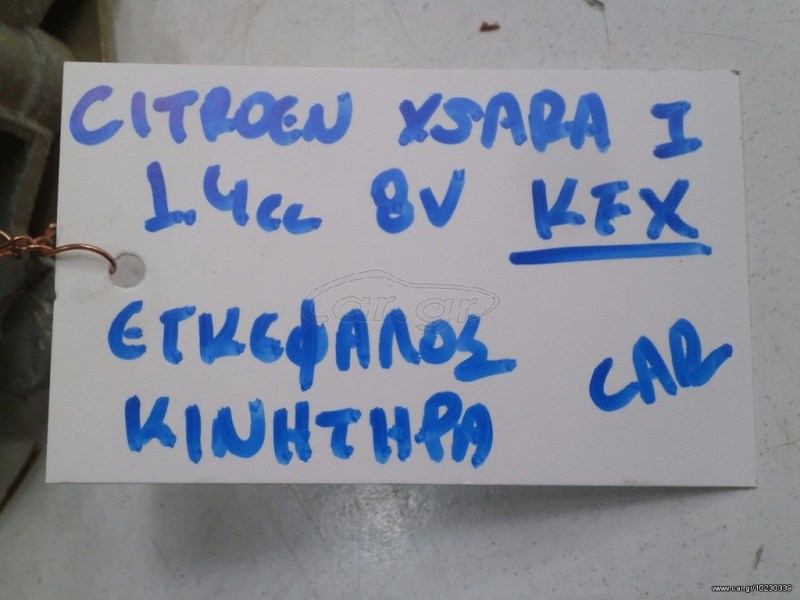 CITROEN XSARA I
1.4cc 8V KFX
ΕΓΚΕΦΑΛΟΣ
ΚΙΝΗΤΗΡΑ
CAR
car.gr
www.car.gr/10230339